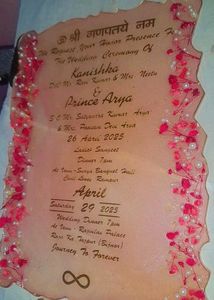 ॐ श्री गणपतये नम
We Request Your Honor Presence For
The Wedding Ceremony Of
Kanishka
D/O Mr. Ravi Kumar & Mrs. Neetu
&
Prince Arya
S/O Mr. Satyendra Kumar Arya
& Mrs. Poonam Devi Arya
26 April 2025
Ladies Sangeet
Dinner 7pm
At Venu-Surya Banquet Hall
Civil Lines Rampur
April
Saturday 29 2025
Wedding Dinner 7pm
At Venu- Rajmilan Palace
Ravi Ka Tajpur (Bijnor)
Journey To Forever